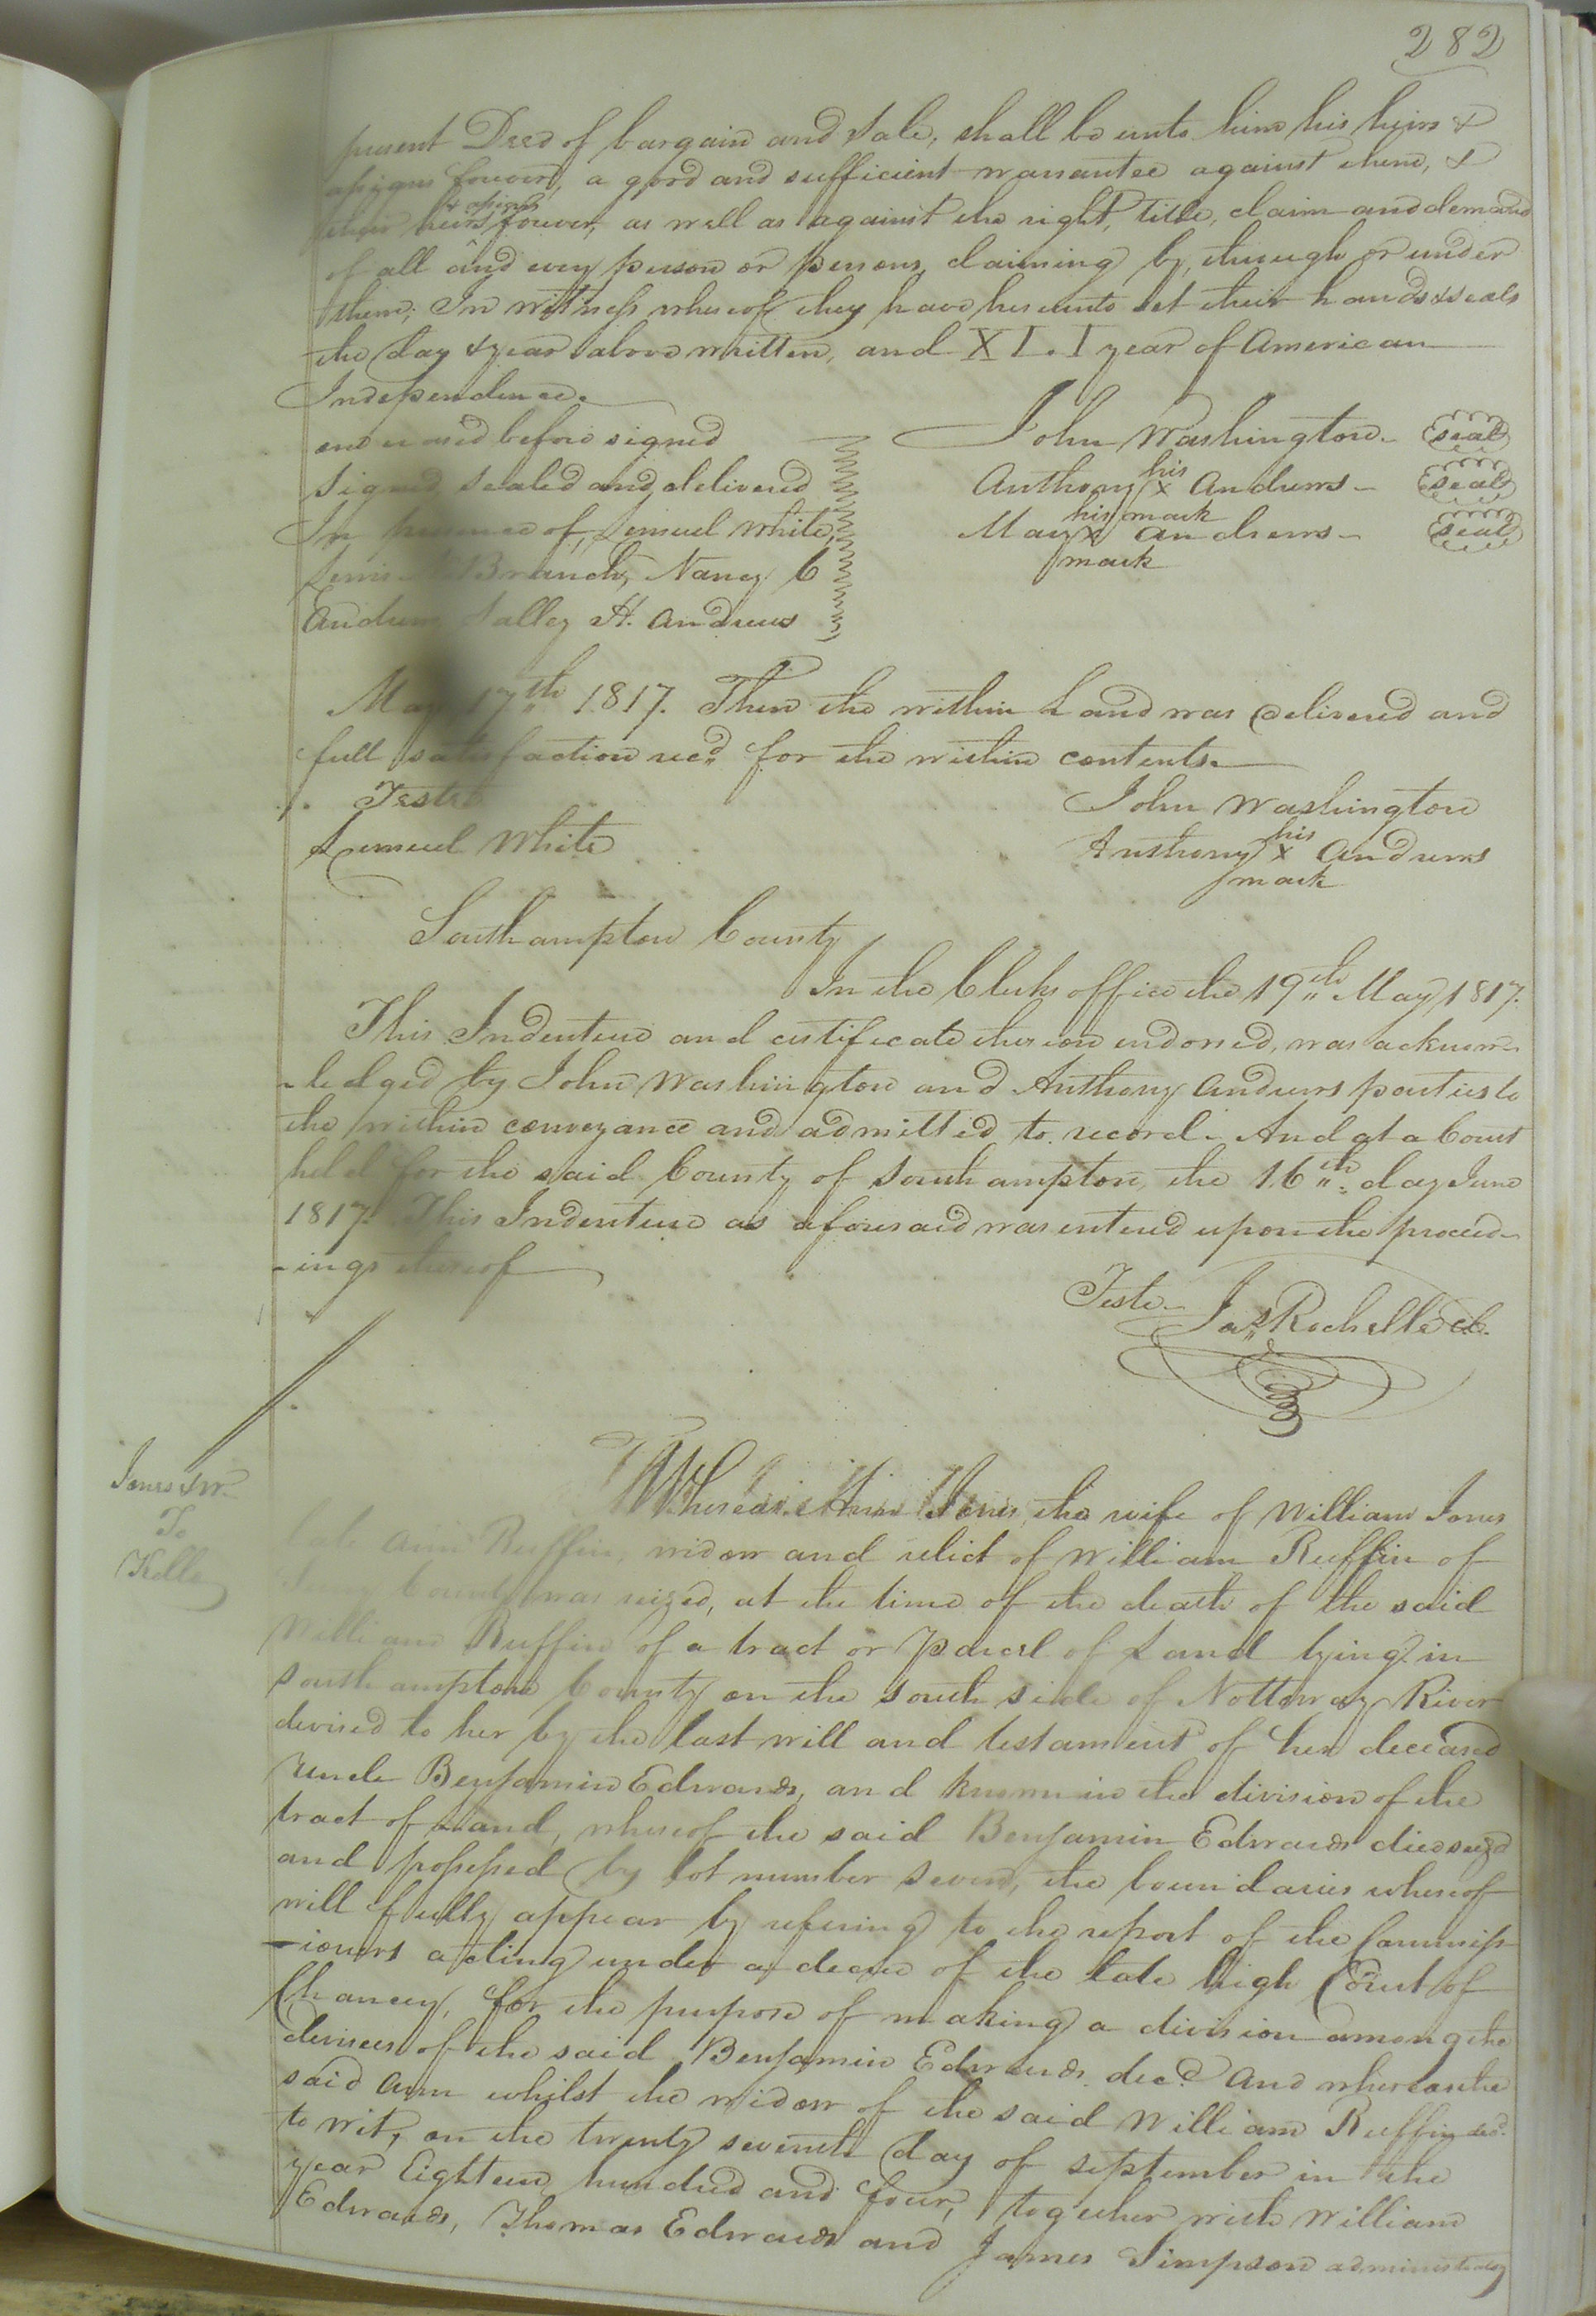 282
present Deed of bargain and Sale, shall be unto him his heirs &
assigns forever, a good and sufficient warrantee against them, &
& assigns
their heirs forever, as well as against the right, title, claim and demand
of all and every person or persons, claiming by, through or under
them; In witness whereof they have hereunto set their hands & seals
the day & year above written, and XLI year of American
Independence.
before signed
Signed Sealed and delivered
In presence of, Lemuel White,
Lewis Branch, Nancy C
Andrews Salley H. Andrews
John Washington. seal
Anthony his X mark Andrews - seal
Mary his X mark Andrews - seal
May 17th 1817. Then the within Land was delivered and
full satisfaction recd. for the within contents.
Teste
Lemuel White
John Washington
Anthony his X mark Andrews
Southampton County
In the Clerks office the 19th May 1817.
This Indenture and certificate thereon endorsed, was acknow-
-ledged by John Washington and Anthony Andrews parties to
the within conveyance and admitted to record. And at a Court
held for the said County of Southampton, the 16th day June
1817. This Indenture as aforesaid was entered upon the proceed-
-ings thereof
Teste. Jas. Rochelle Cl.
Jones & Wr.
To
Kello
Whereas Ann Jones, the wife of William Jones
late Ann Ruffin, widow and relict of William Ruffin of
Surry County was seized, at the time of the death of the said
William Ruffin of a tract or parcel of Land lying in
Southampton County on the south side of Nottoway River
devised to her by the last will and testament of her deceased
Uncle Benjamin Edwards, and known in the division of the
tract of Land, whereof the said Benjamin Edwards died seizd
and possessed by lot number seven, the boundaries whereof
will fully appear by refering to the report of the Commiss
-ioners acting under a decree of the late high Court of
Chancery, for the purpose of making a division among the
devisees of the said Benjamin Edwards decd. And whereas the
said Ann whilst the widow of the said William Ruffin decd.
to wit, on the twenty seventh day of september in the
year Eighteen hundred and four, together with William
Edwards, Thomas Edwards and James Simpson